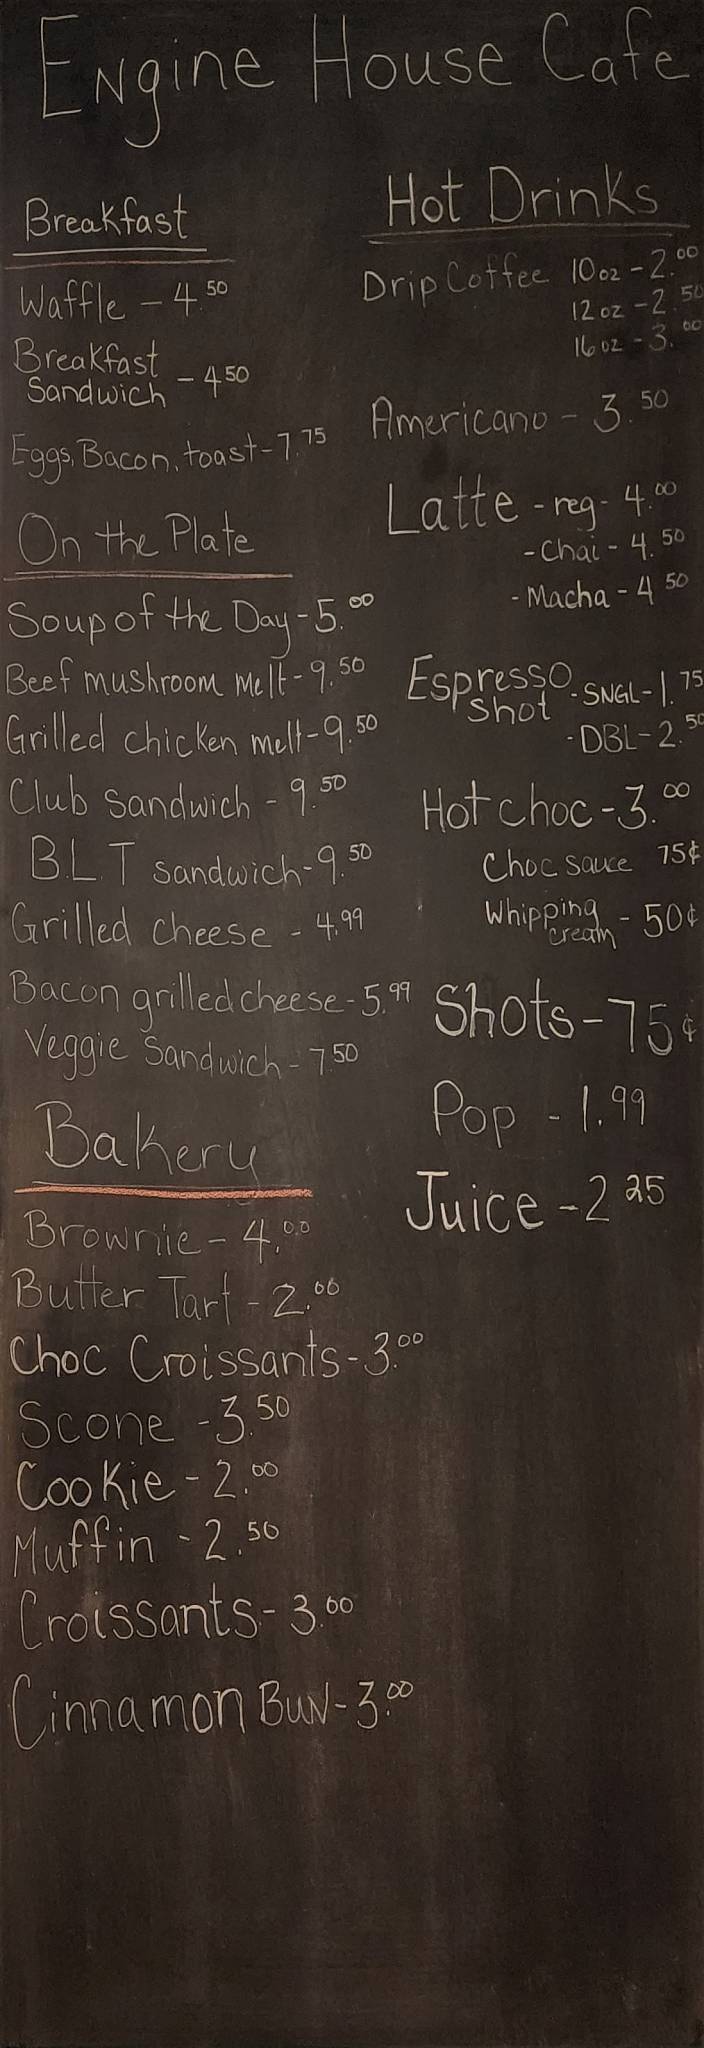 Engine House Cafe
Breakfast
Waffle - 4.50
Breakfast
Sandwich - 4 50
Eggs, Bacon, toast - 7.75
On the Plate
Soup of the Day - 5.00
Beef mushroom melt - 9.50
Grilled chicken melt - 9.50
Club Sandwich - 9.50
B.L.T sandwich - 9.50
Grilled cheese - 4.99
Bacon grilled cheese - 5.99
Veggie Sandwich - 7.50
Bakery
Brownie - 4.00
Butter Tart - 2.00
Choc Croissants - 3.00
Scone - 3.50
Cookie - 2.00
Muffin - 2.50
Croissants - 3.00
Cinnamon BuN - 3.00
Hot Drinks
Drip Coffee 10oz - 2.00
12oz - 2.50
16oz - 3.00
Americano - 3.50
Latte - reg - 4.00
- Chai - 4.50
- Macha - 4 50
Espresso
Shot - SNGL - 1.75
- DBL - 2.50
Hot choc - 3.00
Choc sauce 75¢
Whipping
cream - 50¢
Shots - 75¢
Pop - 1.99
Juice - 2 25